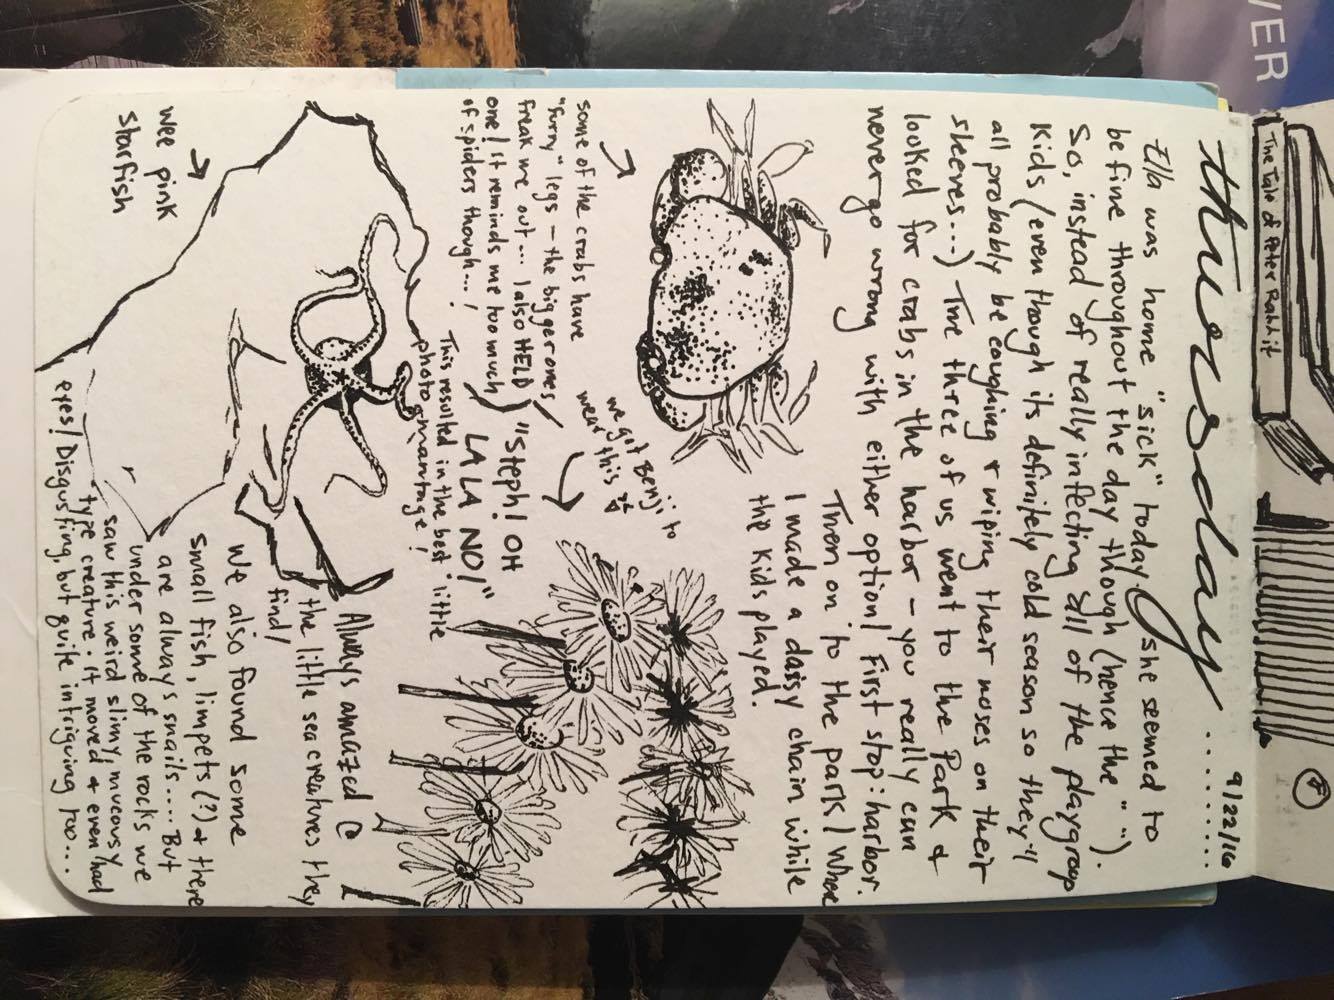 VER
The Tale of Peter Rabbit
thursday ........ 9/22/16
Ella was home "sick" today (she seemed to
be fine throughout the day though (hence the " ").
So, instead of really infecting all of the playgroup
kids (even though its definitely cold season so they'll
all probably be coughing & wiping their noses on their
sleeves...) The three of us went to the Park &
looked for crabs in the harbor - you really can
never go wrong with either option! First stop: harbor.
Then on to the park! Where
I made a daisy chain while
the kids played.
we got Benji to
wear this
some of the crabs have
"furry" legs - the bigger ones
freak me out... I also HELD
one! It reminds me too much
of spiders though...!
"Steph! OH
LA LA NO!"
This resulted in the best little
photo montage!
wee pink
starfish
Always amazed @
the little sea creatures they
find!
We also found some
small fish, limpets (?) & there
are always snails.... But
under some of the rocks we
saw this weird slimy/mucousy
type creature. It moved & even had
eyes! Disgusting, but quite intriguing too...